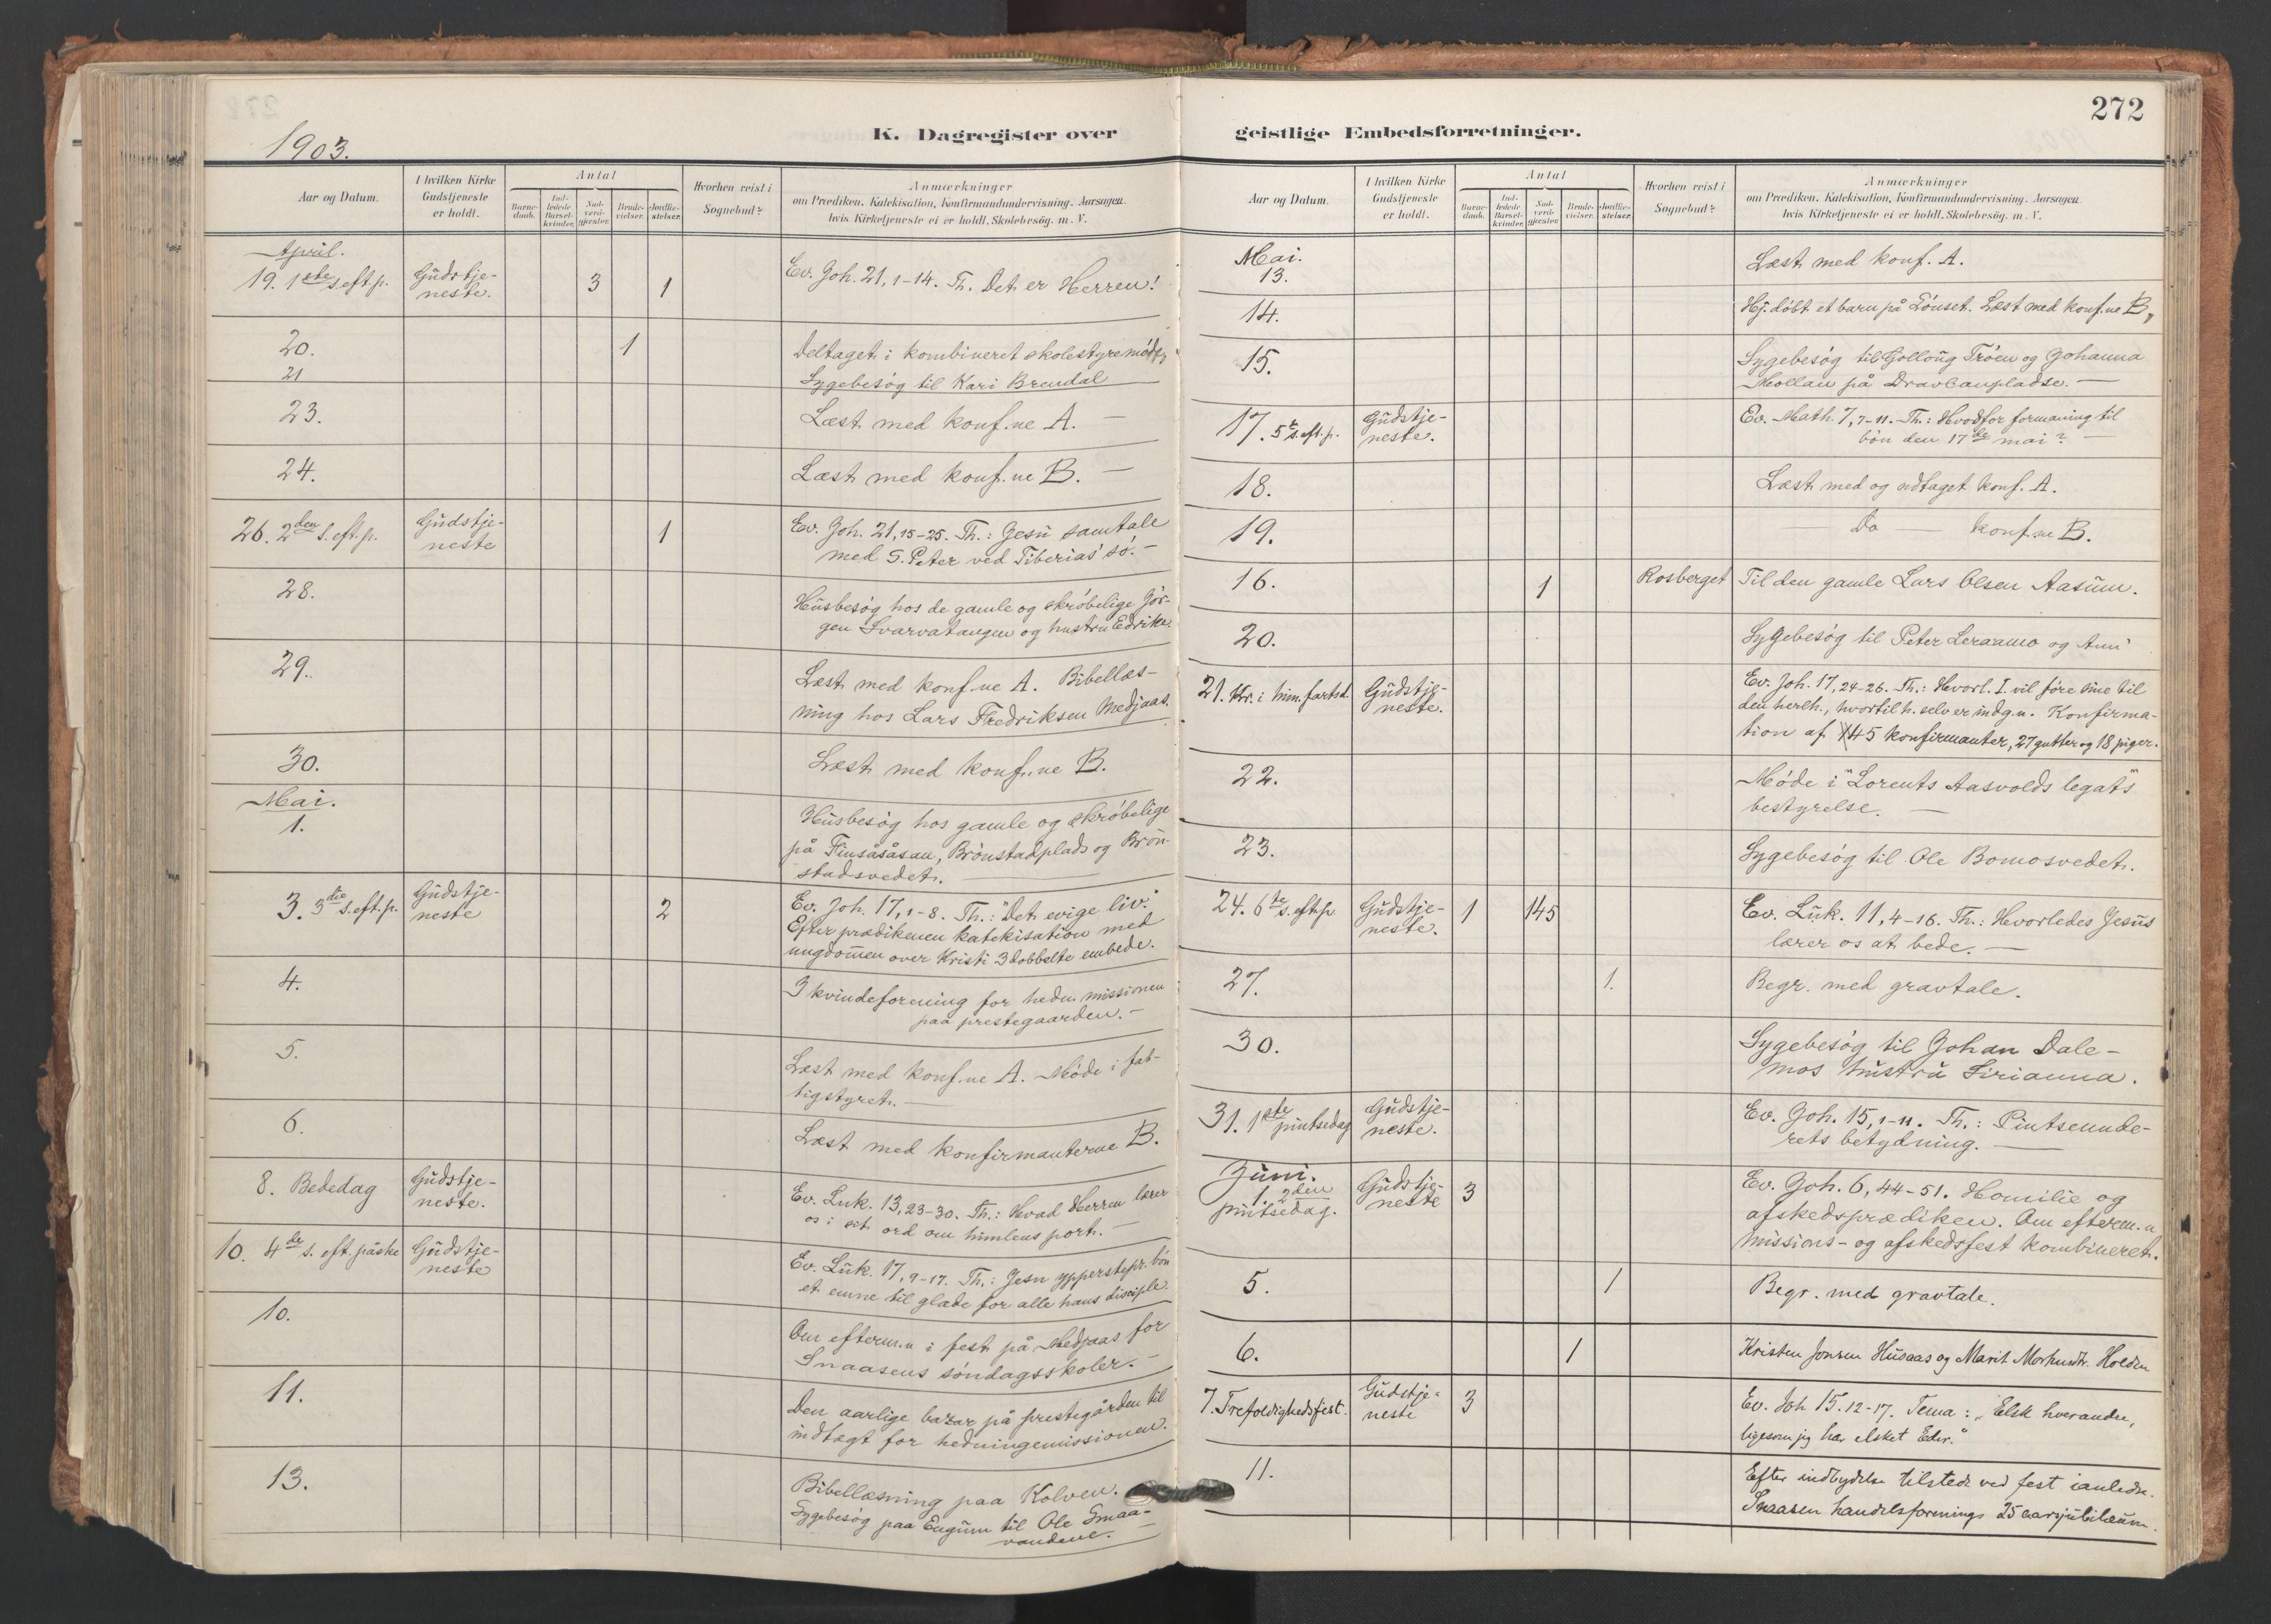 1903.
K. Dagregister over
Aar og Datum.
I hvilken Kirke Gudstjeneste er holdt.
Antal
Barnedaab.
Indledede Barselkvinder.
Nadverdgjester.
Brudevielser.
Jordfæstelser.
Hvorhen reist i Sognebud?
Anmærkninger
om Prædiken, Katekisation, Konfirmandundervisning. Aarsagen,
hvis Kirketjeneste ei er holdt, Skolebesøg. m. V.
April.
19. 1ste s. eft. p. Gudstjeneste. 3 1 Ev. Joh. 21, 1-14. Th. Det er Herren!
20. 1 Deltaget i kombineret skolestyremøde,
21 Sygebesøg til Kari Brendal
23. Læst med konf.ne A. —
24. Læst med konf.ne B. —
26. 2den s. eft. p. Gudstjeneste 1 Ev. Joh. 21, 15-25. Th.: Jesu samtale
med S. Peter ved Tiberias' sø. —
28. Husbesøg hos de gamle og skrøbelige Jør-
gen Svarvatangen og hustru Edrike.
29. Læst med konf.ne A. Bibellæs-
ning hos Lars Fredriksen Medjaas.
30. Læst med konf.ne B.
Mai.
1. Husbesøg hos gamle og skrøbelige
på Finsåsåsan, Brønstadplads og Brøn-
stadsvedet. —
3. 3die s. eft. p. Gudstjeneste 2 Ev. Joh. 17, 1-8. Th.: "Det evige liv."
Efter prædikenen katekisation med
ungdommen over Kristi 3dobbelte embede.
4. I kvindeforening for hedn. missionen
paa prestegaarden. —
5. Læst med konf.ne A. Møde i fat-
tigstyret. —
6. Læst med konfirmanterne B.
8. Bededag Gudstjeneste. Ev. Luk. 13, 23-30. Th.: Hvad Herren lærer
os i sit ord om himlens port. —
10. 4de s. eft. påske Gudstjeneste Ev. Luk. 17, 9-17. Th.: Jesu ypperstepr. bøn
et emne til glæde for alle hans disciple.
10. Om efterm.n i fest på Medjaas for
Snaasens søndagsskoler. —
11. Den aarlige bazar på prestegården til
indtægt for hedningemissionen.
13. Bibellæsning paa Kolven.
Sygebesøg paa Eugum til Ole Smaa-
vandene. —
272
geistlige Embedsforretninger.
Aar og Datum.
I hvilken Kirke Gudstjeneste er holdt.
Antal
Barnedaab.
Indledede Barselkvinder.
Nadverdgjester.
Brudevielser.
Jordfæstelser.
Hvorhen reist i Sognebud?
Anmærkninger
om Prædiken, Katekisation, Konfirmandundervisning. Aarsagen,
hvis Kirketjeneste ei er holdt, Skolebesøg. m. V.
Mai.
13. Læst med konf. A.
14. Hj. døbt et barn på Lønset. Læst med konf.ne B.
15. Sygebesøg til Gollaug Trøen og Johanna
Mollan på Dravlanpladse. —
17. 5te s. eft. p. Gudstjeneste. Ev. Math. 7, 7-11. Th.: Hvodfor formaning til
bøn den 17de mai? —
18. Læst med og udtaget konf. A.
19. Do — konf.ne B.
16. 1 Rosberget Til den gamle Lars Olsen Aasum.
20. Sygebesøg til Peter Leraamo og
21. Kr. i him.fartsd. Gudstjeneste. Ev. Joh. 17, 24-26. Th.: Hvorl. I. vil føre sine til
den herlh., hvortil h. selv er indg.n. Konfirma-
tion af 45 konfirmanter, 27 gutter og 18 piger.
22. Møde i "Lorents Aasvolds legat"s
bestyrelse. —
23. Sygebesøg til Ole Bomosvedet.
24. 6te s. eft. p Gudstjeneste. 1 145 Ev. Luk. 11, 4-16. Th.: Hvorledes Jesus
lærer os at bede. —
27. 1. Begr. med gravtale.
30. Sygebesøg til Johan Dale-
mos hustru Sirianna.
31. 1ste pintsedag Gudstjeneste. Ev. Joh. 15, 1-11. Th.: Pintseunde-
rets betydning. —
Juni.
1. 2den pintsedag. Gudstjeneste 3 Ev. Joh. 6, 44-51. Homilie og
afskedsprædiken. Om efterm.n
missions- og afskedsfest kombineret.
5. 1 Begr. med gravtale.
6. 1 Kristen Jonsen Husaas og Marit Holden
7. Trefoldighedsfest. Gudstjeneste 3 Ev. Joh 15. 12-17. Tema: „Elsk hverandre,
ligesom jeg har elsket Eder."
11. Efter indbydelse tilstede ved fest i anledn.
Snaasen handelsforenings 25 aarsjubilæum.